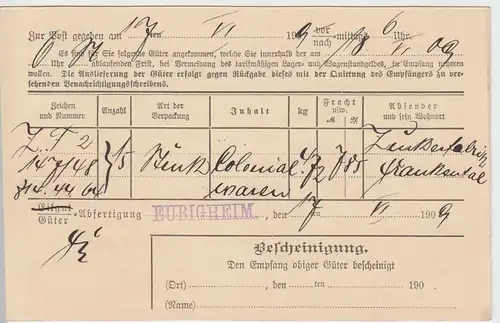 Zur Post gegeben am 17ten VI 1909 vor/nach-mittags 6 Uhr.
Es sind für Sie folgende Güter angekommen, welche Sie innerhalb der am 18. VI 09
6 N Uhr ablaufenden Frist, bei Vermeidung des tarifmäßigen Lager- und Wagenstandgeldes, in Empfang nehmen
wollen. Die Auslieferung der Güter erfolgt gegen Rückgabe dieses mit der Quittung des Empfängers zu ver-
sehenden Benachrichtigungsschreibens.
Zeichen und Nummer Anzahl Art der Verpackung Inhalt kg Fracht usw. M ₰ Absender und sein Wohnort
Z. F 2
147/48 5 Colonial 85
waren Frankental
Eilgut
Güter -Abfertigung EUBIGHEIM, den 17ten VI 1909
Bescheinigung.
Den Empfang obiger Güter bescheinigt
(Ort) , den ten 190
(Name)